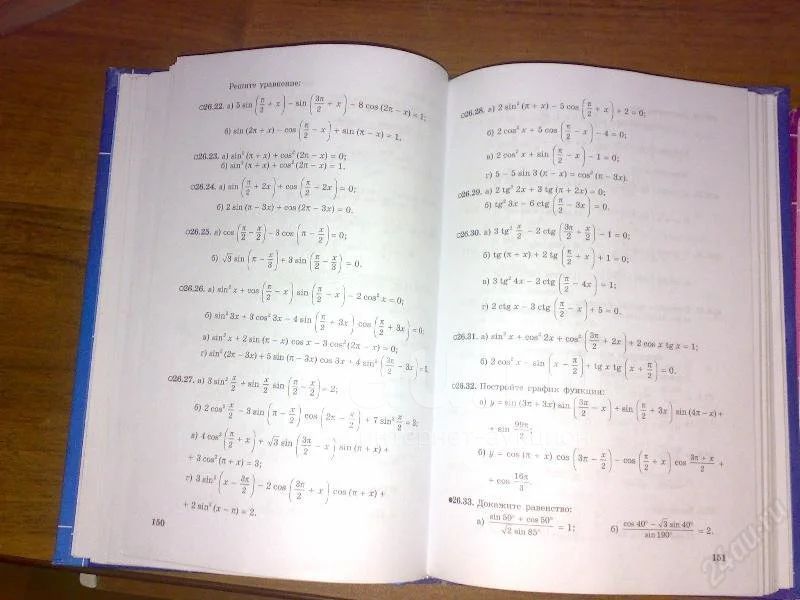 Решите уравнение:
О26.22. а) 5 sin (π/2 + x) − sin (3π/2 + x) − 8 cos (2π − x) = 1;
б) sin (2π + x) − cos (π/2 − x) + sin (π − x) = 1.
О26.23. а) sin² (π + x) + cos² (2π − x) = 0;
б) sin² (π + x) + cos² (2π − x) = 1.
О26.24. а) sin (π/2 + 2x) + cos (π/2 − 2x) = 0;
б) 2 sin (π − 3x) + cos (2π − 3x) = 0.
О26.25. а) cos (π/2 − x/2) − 3 cos (π − x/2) = 0;
б) √3 sin (π − x/3) + 3 sin (π/2 − x/3) = 0.
О26.26. а) sin² x + cos (π/2 − x) sin (π/2 − x) − 2 cos² x = 0;
б) sin² 3x + 3 cos² 3x − 4 sin (π/2 + 3x) cos (π/2 + 3x) = 0;
в) sin² x + 2 sin (π − x) cos x − 3 cos² (2π − x) = 0;
г) sin² (2π − 3x) + 5 sin (π − 3x) cos 3x + 4 sin² (3π/2 − 3x) = 0.
О26.27. а) 3 sin² x/2 + sin x/2 sin (π/2 − x/2) = 2;
б) 2 cos² x/2 − 3 sin (π − x/2) cos (2π − x/2) + 7 sin² x/2 = 2;
в) 4 cos² (π/2 + x) + √3 sin (3π/2 − x) sin (π + x) +
+ 3 cos² (π + x) = 3;
г) 3 sin² (x − 3π/2) − 2 cos (3π/2 + x) cos (π + x) +
+ 2 sin² (x − π) = 2.
150
О26.28. а) 2 sin² (π + x) − 5 cos (π/2 + x) + 2 = 0;
б) 2 cos² x + 5 cos (π/2 − x) − 4 = 0;
в) 2 cos² x + sin (π/2 − x) − 1 = 0;
г) 5 − 5 sin 3 (π − x) = cos² (π − 3x).
О26.29. а) 2 tg² 2x + 3 tg (π + 2x) = 0;
б) tg² 3x − 6 ctg (π/2 − 3x) = 0.
О26.30. а) 3 tg² x/2 − 2 ctg (3π/2 + x/2) − 1 = 0;
б) tg (π + x) + 2 tg (π/2 + x) + 1 = 0;
в) 3 tg² 4x − 2 ctg (π/2 − 4x) = 1;
г) 2 ctg x − 3 ctg (π/2 − x) + 5 = 0.
О26.31. а) sin² x + cos² 2x + cos² (3π/2 + 2x) + 2 cos x tg x = 1;
б) 2 cos² x − sin (x − π/2) + tg x tg (x + π/2) = 0.
О26.32. Постройте график функции:
а) y = sin (3π + 3x) sin (3π/2 − x) + sin (π/2 + 3x) sin (4π − x) +
+ sin 99π/2;
б) y = cos (π + x) cos (3π − x/2) − cos (π/2 + x) cos (3π + x)/2 +
+ cos 16π/3.
●26.33. Докажите равенство:
а) (sin 50° + cos 50°)/(√2 sin 85°) = 1; б) (cos 40° − √3 sin 40°)/(sin 190°) = 2.
151
24au.ru